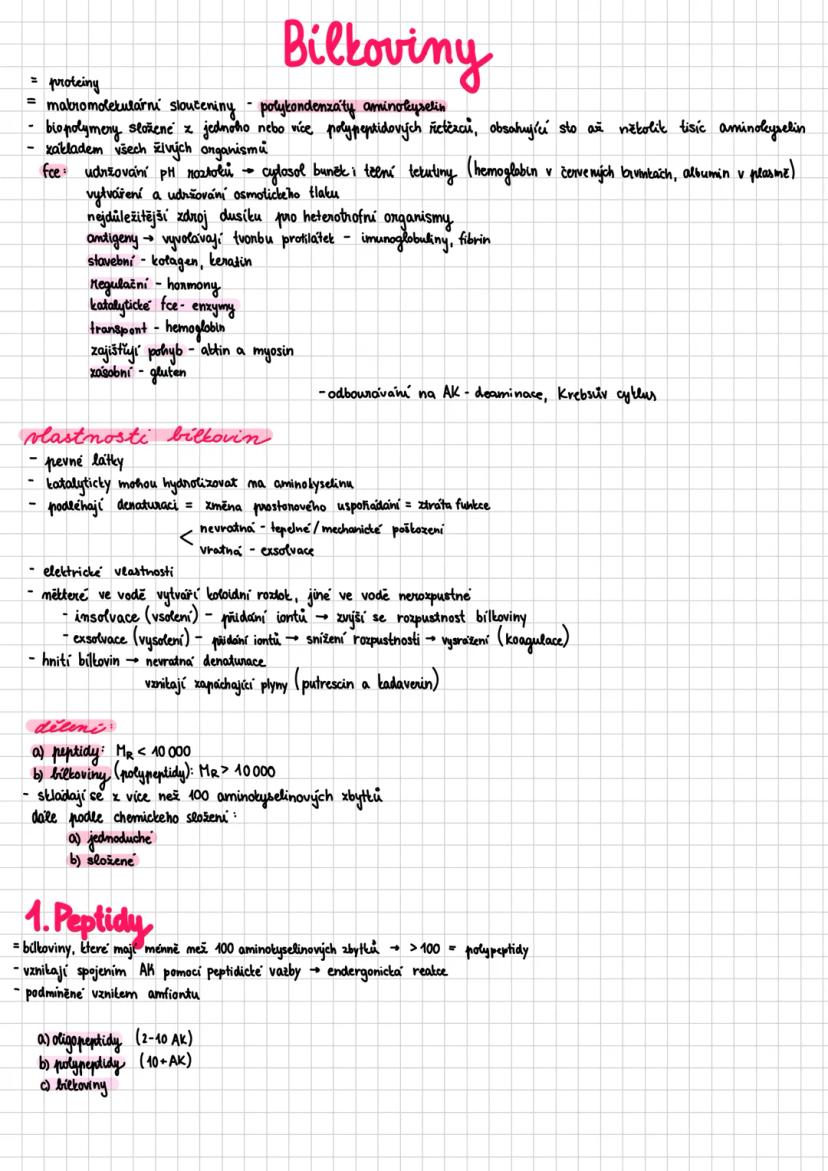 Bílkoviny
= proteiny
= makromolekulární sloučeniny - polykondenzáty aminokyselin
- biopolymery složené z jednoho nebo více polypeptidových řetězců, obsahující sto až několik tisíc aminokyselin
- základem všech živých organismů
fce: udržování pH roztoků → cytosol buněk i tělní tekutiny (hemoglobin v červených krvinkách, albumin v plasmě)
vytváření a udržování osmotického tlaku
nejdůležitější zdroj dusíku pro heterotrofní organismy
antigeny → vyvolávají tvorbu protilátek - imunoglobuliny, fibrin
stavební - kolagen, keratin
regulační - hormony
katalytické fce - enzymy
transport - hemoglobin
zajišťují pohyb - aktin a myosin
zásobní - gluten
- odbourávání na AK - deaminace, Krebsův cyklus
vlastnosti bílkovin
- pevné látky
- katalyticky mohou hydrolizovat na aminokyselinu
- podléhají denaturaci = změna prostorového uspořádání = ztráta funkce
< nevratná - tepelné/mechanické poškození
vratná - exsolvace
- elektrické vlastnosti
- některé ve vodě vytváří koloidní roztok, jiné ve vodě nerozpustné
- insolvace (vsolení) - přidání iontů → zvýší se rozpustnost bílkoviny
- exsolvace (vysolení) - přidání iontů → snížení rozpustnosti → vysrážení (koagulace)
- hnití bílkovin → nevratná denaturace
vznikají zapáchající plyny (putrescin a kadaverin)
dělení:
a) peptidy: MR < 10 000
b) bílkoviny (polypeptidy): MR > 10 000
- skládají se z více než 100 aminokyselinových zbytků
dále podle chemického složení:
a) jednoduché
b) složené
1. Peptidy
= bílkoviny, které mají méně než 100 aminokyselinových zbytků → >100 = polypeptidy
- vznikají spojením AK pomocí peptidické vazby → endergonická reakce
- podmíněné vznikem amfiontu
a) oligopeptidy (2-10 AK)
b) polypeptidy (10+ AK)
c) bílkoviny